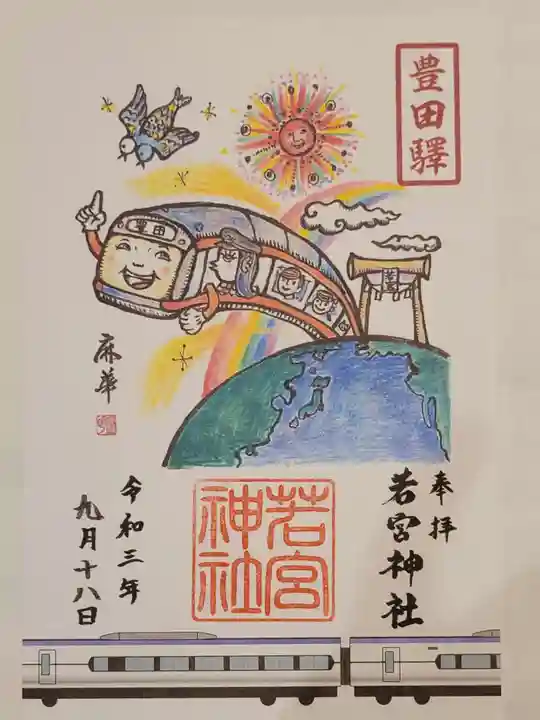 豊田驛
豊田
若宮
麻華
奉拝
若宮神社
若宮
神社
令和三年
九月十八日